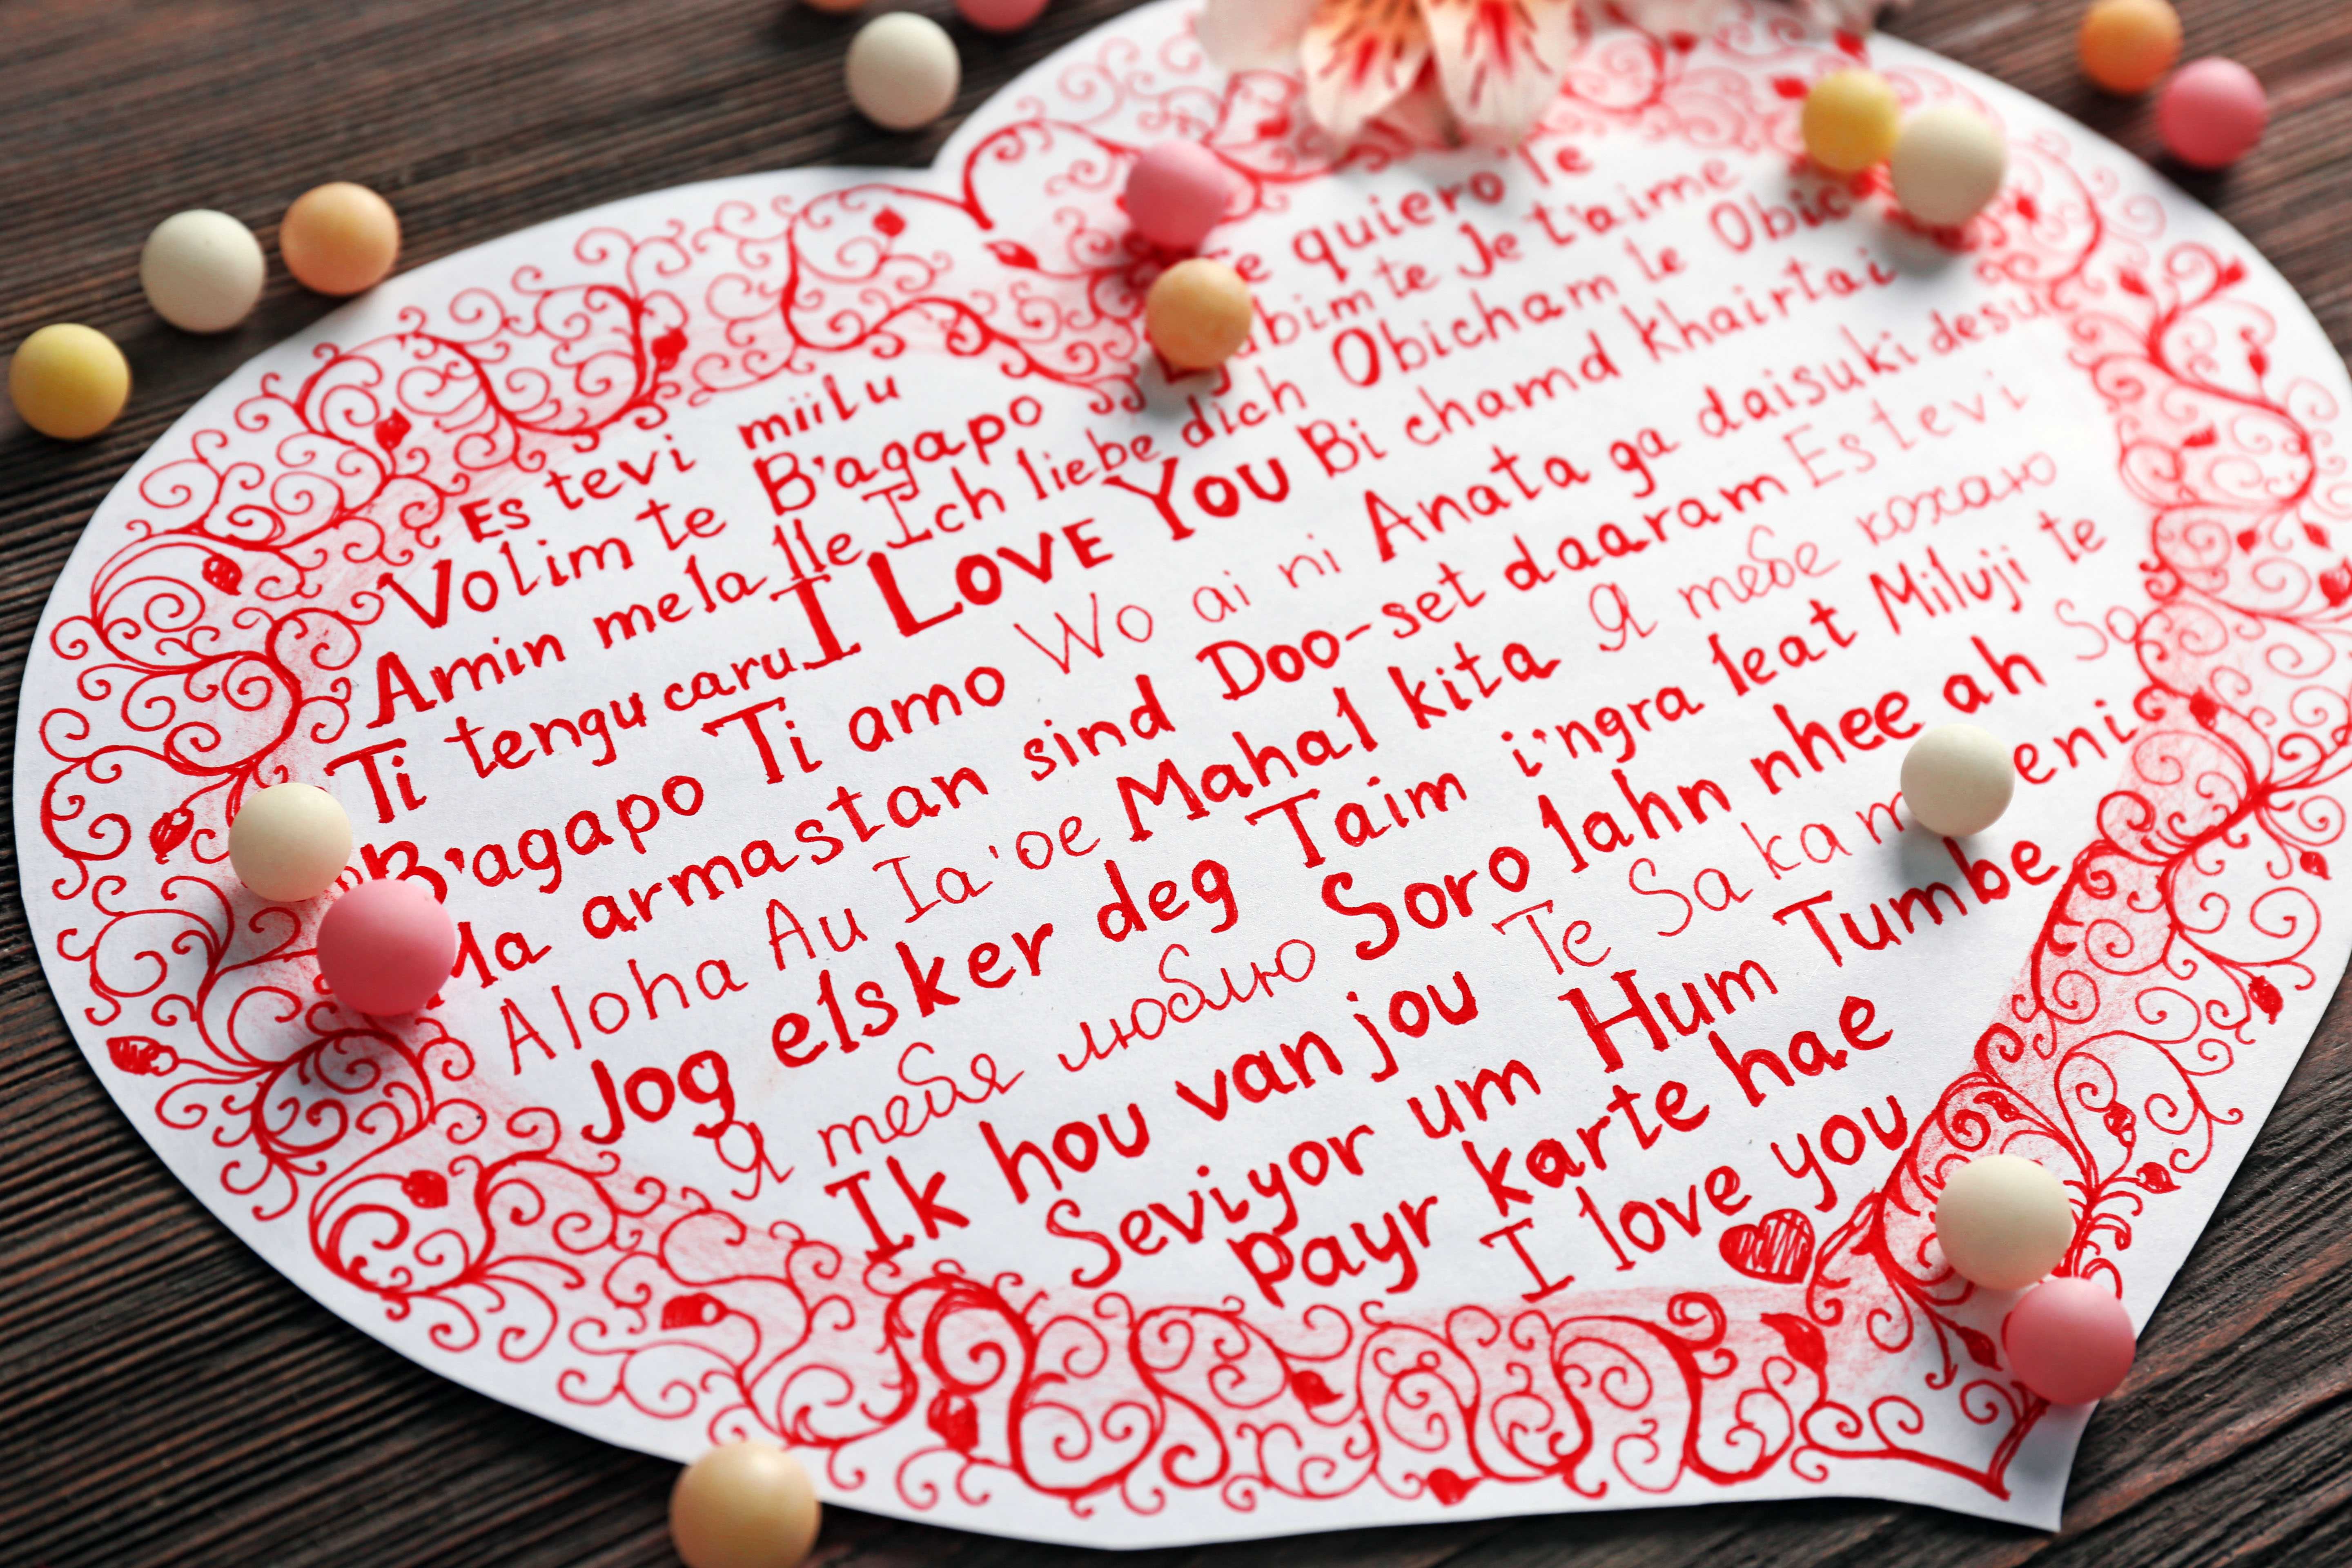 quiero te
te Je t'aime
Es tevi miilu
Volim te B'agapo Ich liebe dich Obicham te
Amin mela lle I Love You Bi chamd khairtai
Ti tengu caru
B'agapo Ti amo Wo ai ni Anata ga daisuki desu
armastan sind Doo-set daaram Es tevi
Aloha Au Ia'oe Mahal kita Я тебе кохаю
Jog elsker deg Taim i'ngra leat Miluji te
Я тебя люблю Soro lahn nhee ah So
Ik hou van jou Te Sa
Seviyor um Hum Tumbe
Payr karte hae
I love you